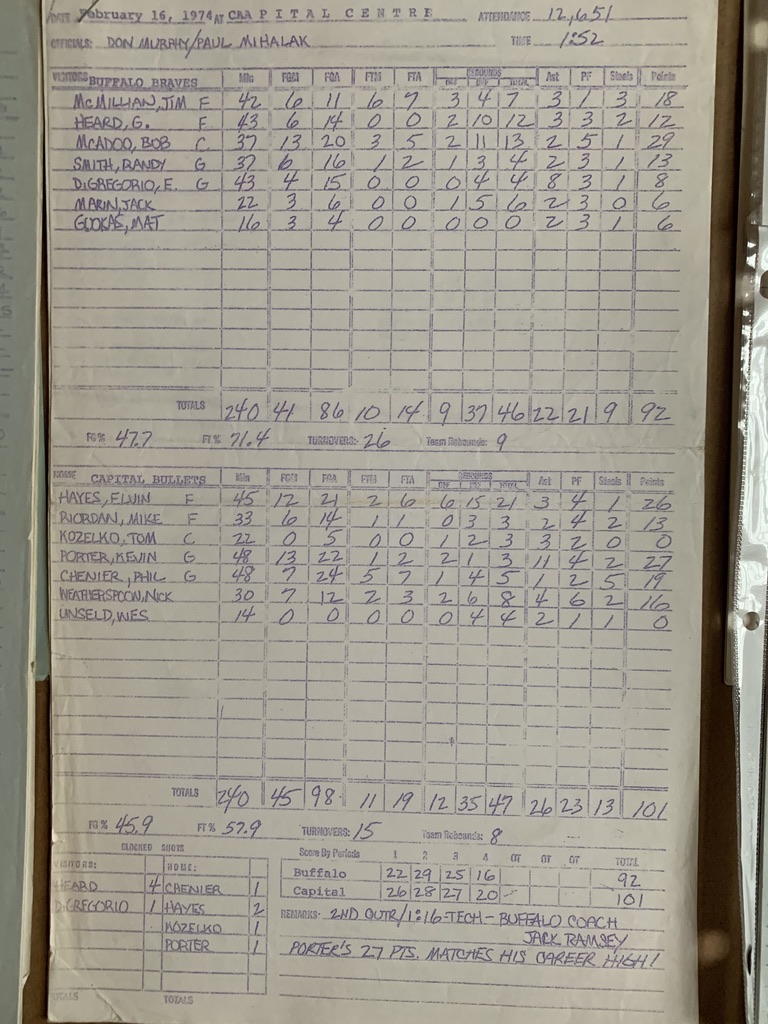 DATE February 16, 1974 AT CAAPITAL CENTRE ATTENDANCE 12,651
OFFICIALS: DON MURPHY/PAUL MIHALAK TIME 1:52
VISITORS BUFFALO BRAVES Min FGM FGA FTM FTA REBOUNDS OFF DEF TOTAL Ast PF Steals Points
McMILLIAN, JIM F 42 6 11 6 7 3 4 7 3 1 3 18
HEARD, G. F 43 6 14 0 0 2 10 12 3 3 2 12
McADOO, BOB C 37 13 20 3 5 2 11 13 2 5 1 29
SMITH, RANDY G 37 6 16 1 2 1 3 4 2 3 1 13
DiGREGORIO, E. G 43 4 15 0 0 0 4 4 8 3 1 8
MARIN, JACK 22 3 6 0 0 1 5 6 2 3 0 6
GUOKAS, MAT 16 3 4 0 0 0 0 0 2 3 1 6
TOTALS 240 41 86 10 14 9 37 46 22 21 9 92
FG% 47.7 FT% 71.4 TURNOVERS: 26 Team Rebounds: 9
HOME CAPITAL BULLETS Min FGM FGA FTM FTA REBOUNDS OFF DEF TOTAL Ast PF Steals Points
HAYES, ELVIN F 45 12 21 2 6 6 15 21 3 4 1 26
RIORDAN, MIKE F 33 6 14 1 1 0 3 3 2 4 2 13
KOZELKO, TOM C 22 0 5 0 0 1 2 3 3 2 0 0
PORTER, KEVIN G 48 13 22 1 2 2 1 3 11 4 2 27
CHENIER, PHIL G 48 7 24 5 7 1 4 5 1 2 5 19
WEATHERSPOON, NICK 30 7 12 2 3 2 6 8 4 6 2 16
UNSELD, WES 14 0 0 0 0 0 4 4 2 1 1 0
TOTALS 240 45 98 11 19 12 35 47 26 23 13 101
FG% 45.9 FT% 57.9 TURNOVERS: 15 Team Rebounds: 8
BLOCKED SHOTS
VISITORS: HOME:
HEARD 4 CHENIER 1
DiGREGORIO 1 HAYES 2
KOZELKO 1
PORTER 1
TOTALS TOTALS
Score By Periods 1 2 3 4 OT OT OT TOTAL
Buffalo 22 29 25 16 92
Capital 26 28 27 20 101
REMARKS: 2ND QUTR/1:16-TECH-BUFFALO COACH
JACK RAMSEY
PORTER'S 27 PTS. MATCHES HIS CAREER HIGH!